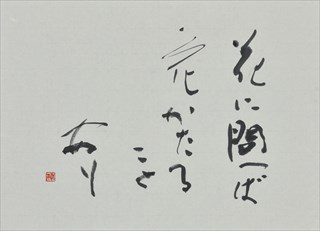 花に問へば
花かたる
こと
あり